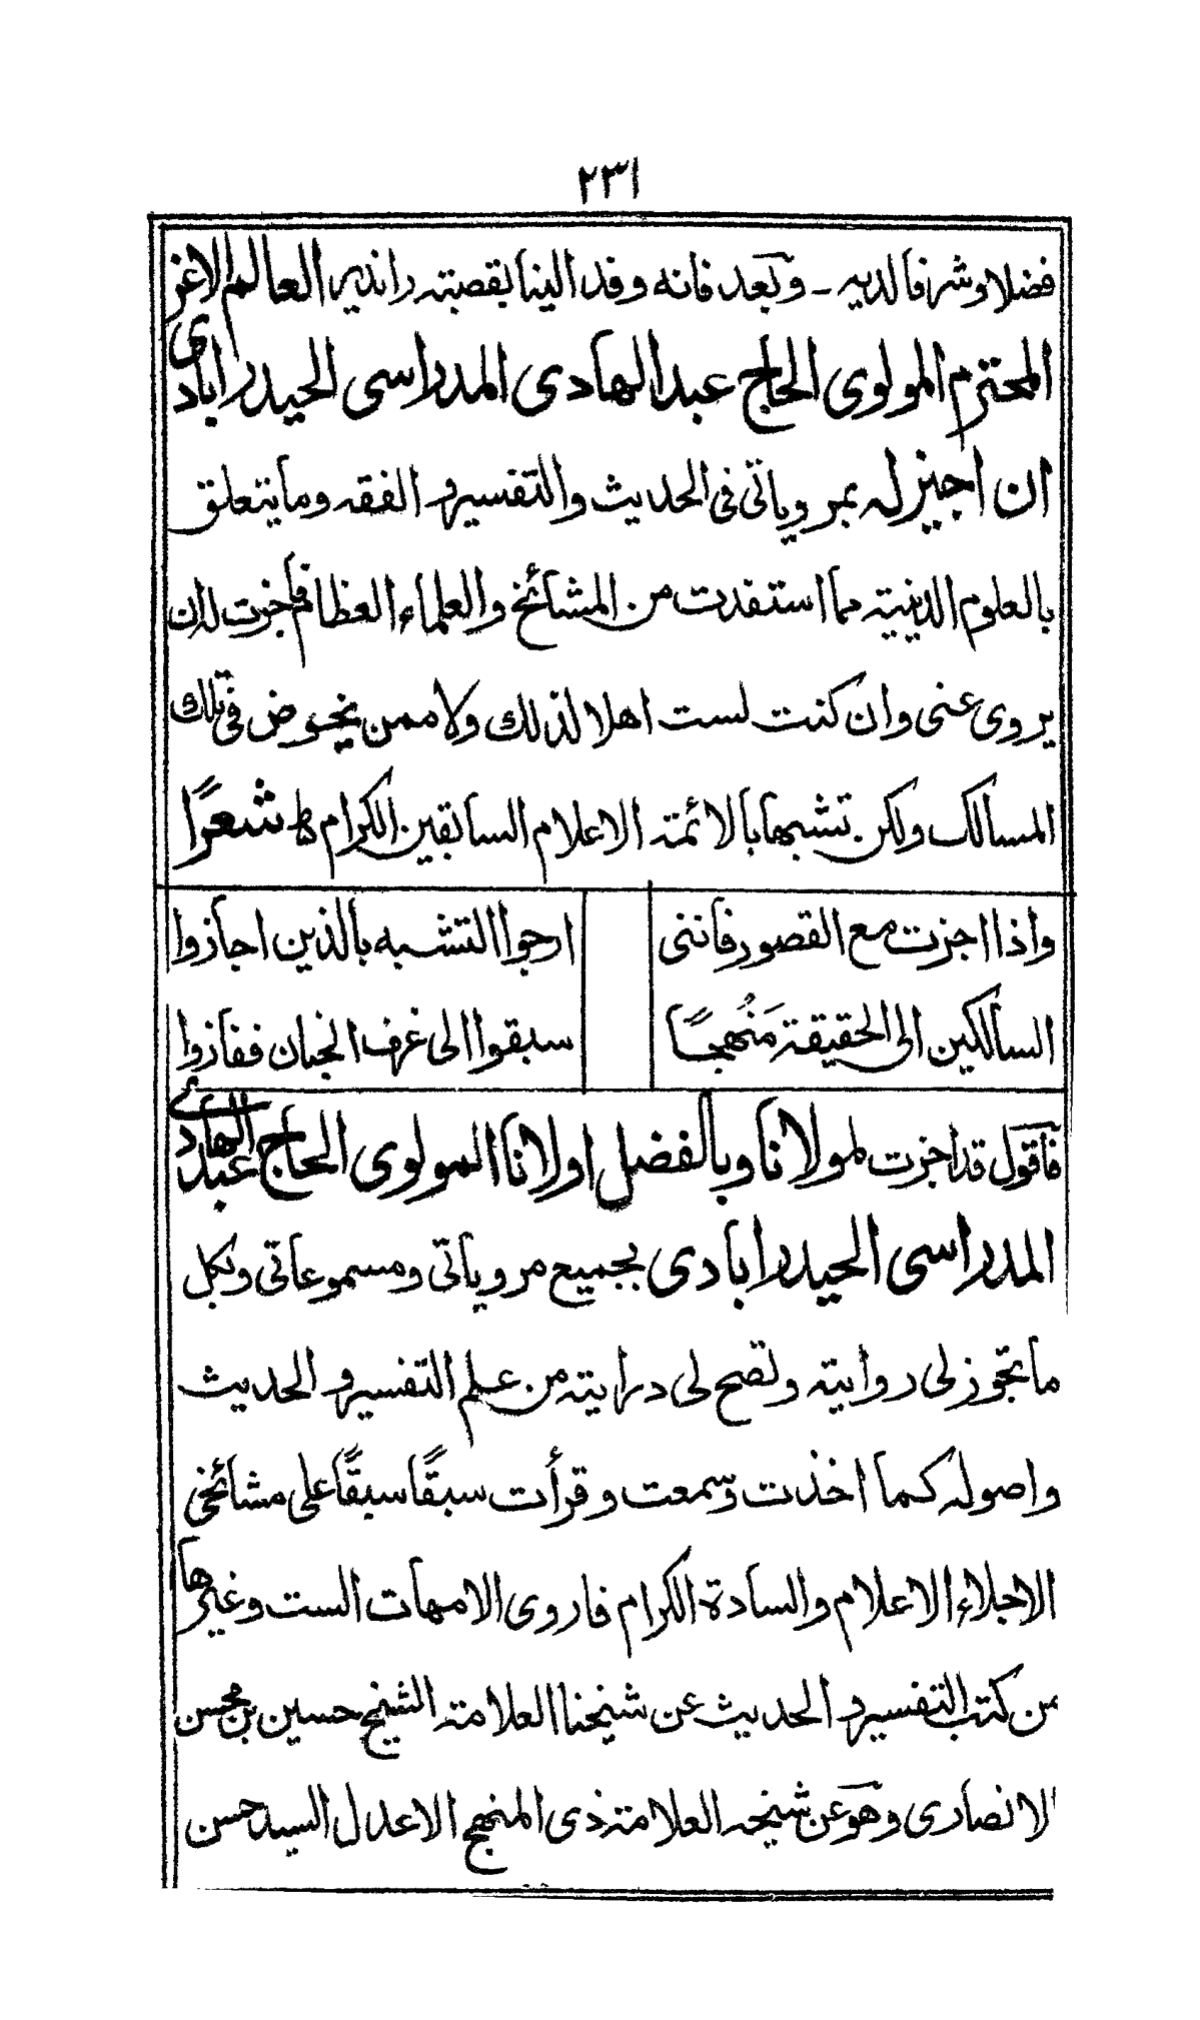 ٢٣١
فضلا وشرفا لديه ۔ وبعد فانه وفد الينا بقصبته راندير العالم الاغر
المحترم المولوى الحاج عبد الهادى المدراسى الحيدراٰبادى
ان اجيز له بمروياتى فى الحديث والتفسير و الفقه وما يتعلق
بالعلوم الدينية مما استفدت من المشائخ والعلماء العظام فاجزت له ان
يروى عنى وان كنت لست اهلا لذلك ولا ممن يخوض فى تلك
المسالك ولكن تشبها بالائمة الاعلام السابقين الكرام ط شعرًا
واذا اجزت مع القصور فاننى ارجوا التشبه بالذين اجازوا
السالكين الى الحقيقة مَنُهجًا سبقوا الى غرف الجنان ففازوا
فاقول قد اجزت لمولانا وبالفضل اولانا المولوى الحاج عبد الهادى
المدراسى الحيدراٰبادى بجميع مروياتى ومسموعاتى وبكل
ما تجوز لى روايته وتصح لى درايته من علم التفسير و الحديث
واصوله كما اخذت وسمعت وقرأت سبقًا سبقًا على مشائخى
الاجلاء الاعلام والسادة الكرام فاروى الامهات الست وغيرها
من كتب التفسير و الحديث عن شيخنا العلامة الشيخ حسين بن محسن
الانصارى وهو عن شيخه العلامة ذى المنهج الاعدل السيد حسن